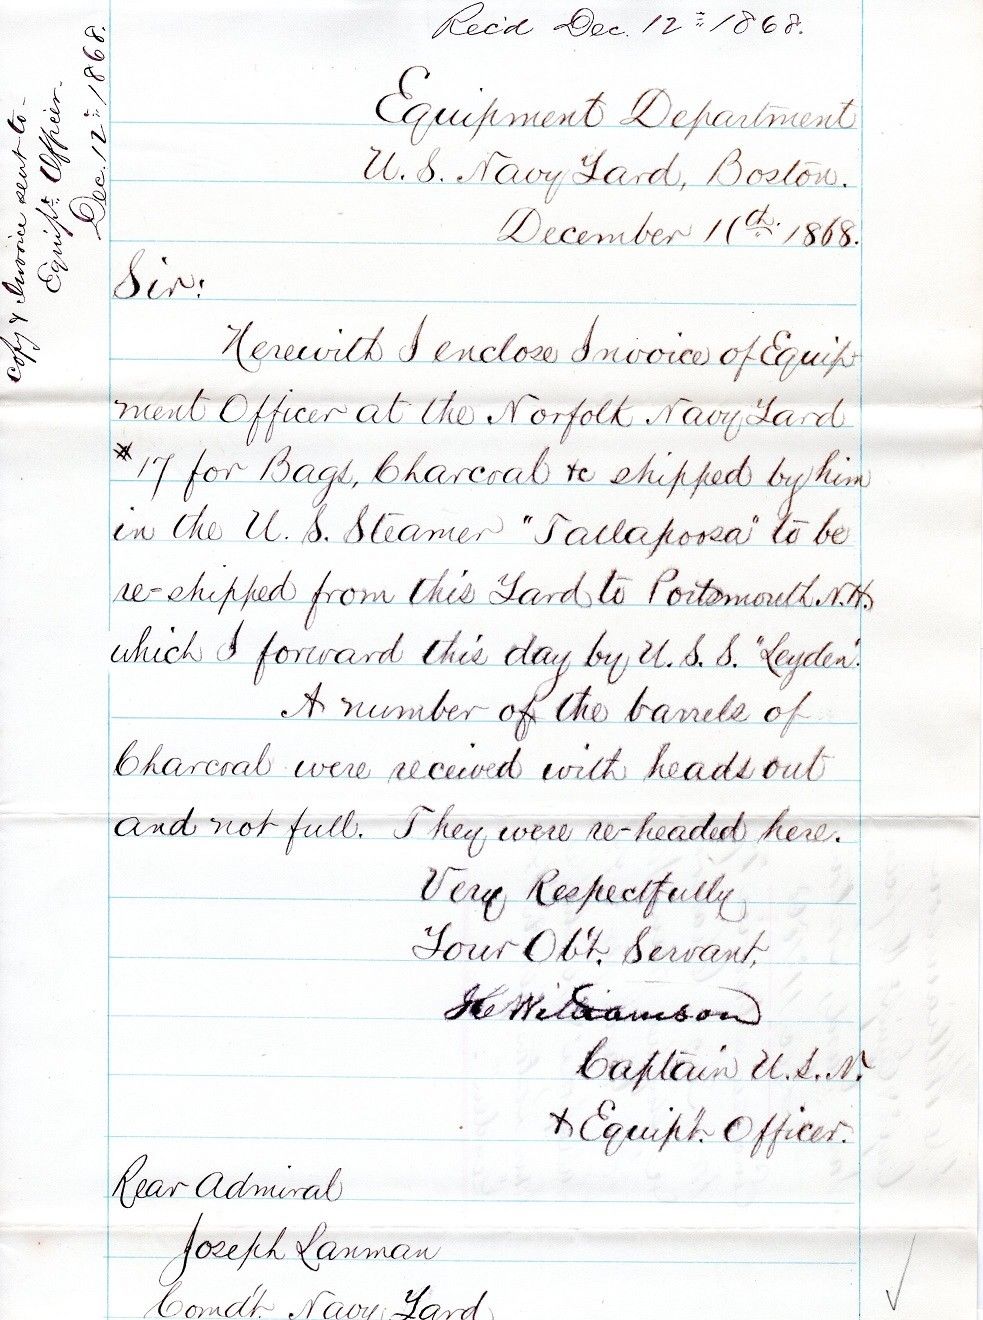 Rec'd Dec. 12" 1868.
Copy & Invoice sent to-
Equip't Officer.
Dec. 12" 1868.
Equipment Department
U. S. Navy Yard, Boston.
December 11th 1868.
Sir:
Herewith I enclose Invoice of Equip-
ment Officer at the Norfolk Navy Yard
#17 for Bags, Charcoal &c shipped by him
in the U. S. Steamer "Tallapoosa" to be
re-shipped from this Yard to Portsmouth N.H.
which I forward this day by U. S. S. "Leyden".
A number of the barrels of
Charcoal were received with heads out
and not full. They were re-headed here.
Very Respectfully
Your Ob't. Servant,
Williamson
Captain U.S.N.
& Equip't. Officer.
Rear Admiral
Joseph Lanman
Comd't. Navy Yard